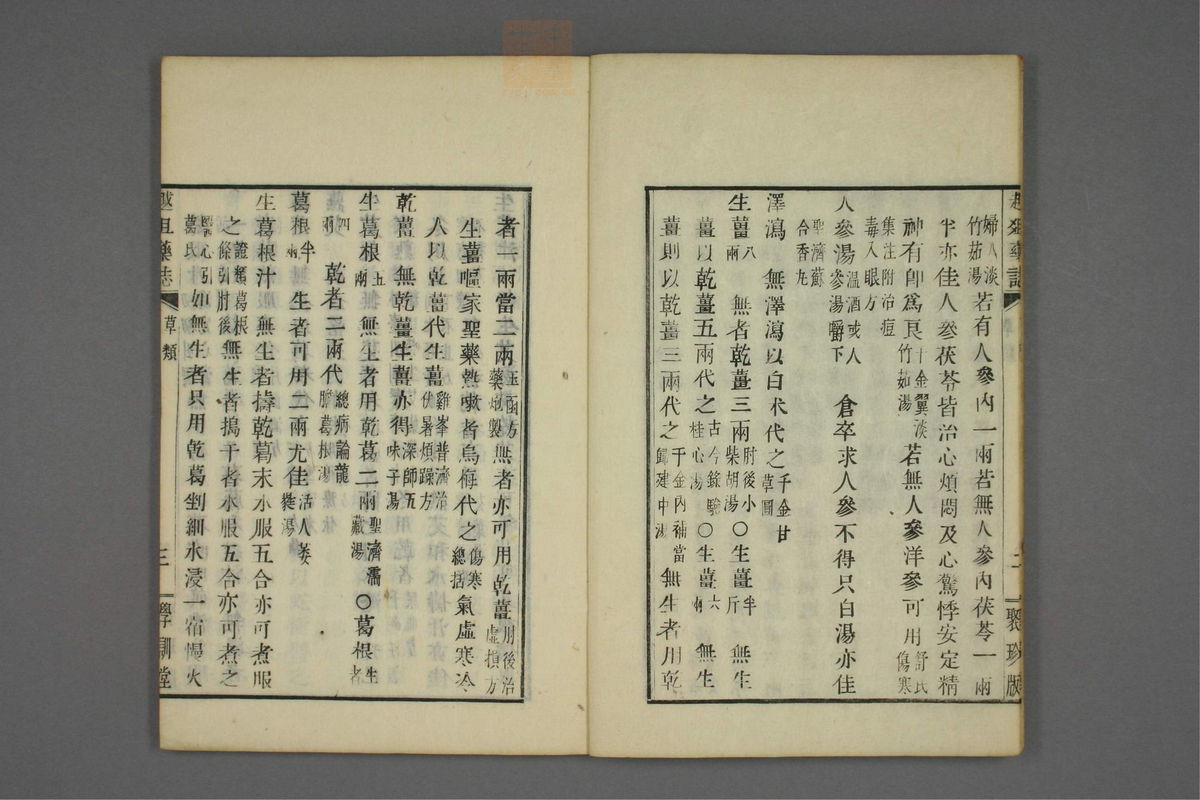 婦人淡竹茹湯若有人參內一兩若無人參內茯苓一兩
半亦佳人參茯苓皆治心煩悶及心驚悸安定精
神有卽爲良千金翼淡竹茹湯若無人參洋參可用舒氏傷寒
集注附治痘毒入眼方
人參湯溫酒或人參湯嚼下倉卒求人參不得只白湯亦佳
聖濟蘇合香丸
澤瀉無澤瀉以白朮代之千金甘草圓
生薑八兩無者乾薑三兩肘後小柴胡湯○生薑半斤無生
薑以乾薑五兩代之古今錄驗桂心湯○生薑六兩無生
薑則以乾薑三兩代之千金內補當歸建中湯無生者用乾
聚珍版
者一兩當生二兩玉函方藥燉製無者亦可用乾薑用後治虛損方
生薑嘔家聖藥熱嗽者烏梅代之傷寒總括氣虛寒冷
人以乾薑代生薑雞峯普濟治伏暑煩躁方
乾薑無乾薑生薑亦得深師五味子湯
生葛根五兩無生者用乾葛二兩聖濟濡藏湯○葛根生者
四兩乾者三兩代總病論龍膽葛根湯
葛根半兩生者可用二兩尤佳活人葵樊湯
生葛根汁無生者擣乾葛末水服五合亦可煮服
之證類葛根條引肘後無生者搗干者水服五合亦可煮之
聖心引葛氏如無生者只用乾葛剉細水浸一宿慢火
越俎藥誌
草類
三
學訓堂